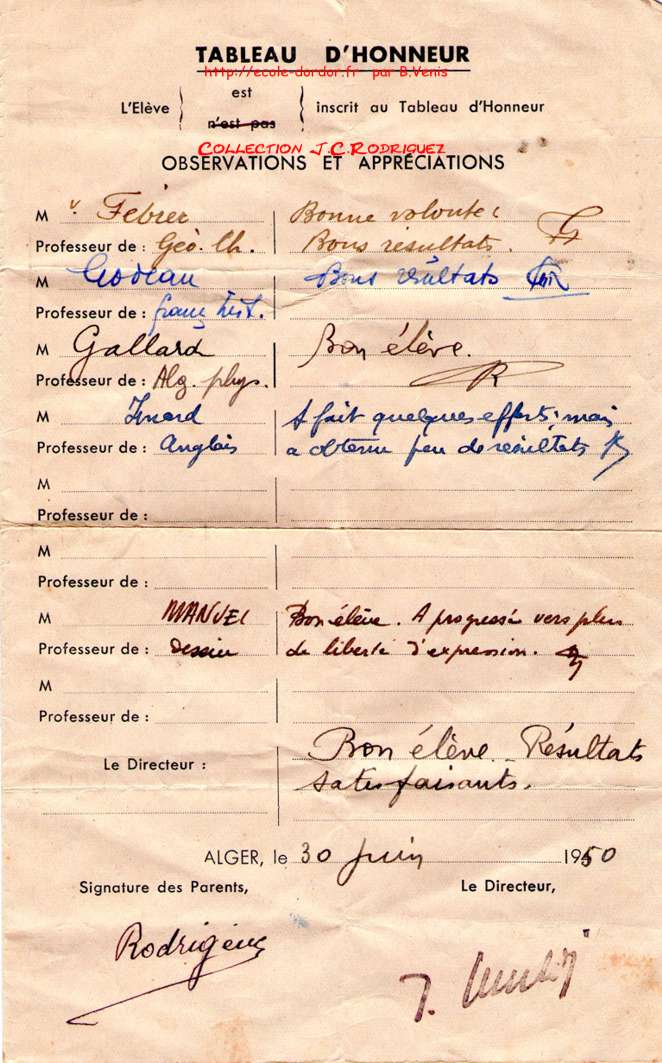 TABLEAU D'HONNEUR
http://ecole-dordor.fr par B.Venis
est
L'Elève inscrit au Tableau d'Honneur
n'est pas
COLLECTION J.C.RODRIGUEZ
OBSERVATIONS ET APPRÉCIATIONS
M Febrer Bonne volonté
Professeur de : Géo. Ch. Bons résultats.
M Godeau Bons résultats
Professeur de : franç hist.
M Gallard Bon élève.
Professeur de : Alg. phys.
M A fait quelques efforts, mais
Professeur de : Anglais a obtenu peu de résultats
M
Professeur de :
M
Professeur de :
M MANUEL Bon élève. A progressé vers plus
Professeur de : Dessin de liberté d'expression.
M
Professeur de :
Bon élève. Résultats
Le Directeur :
satisfaisants.
ALGER, le 30 juin 1950
Signature des Parents, Le Directeur,
Rodriguez